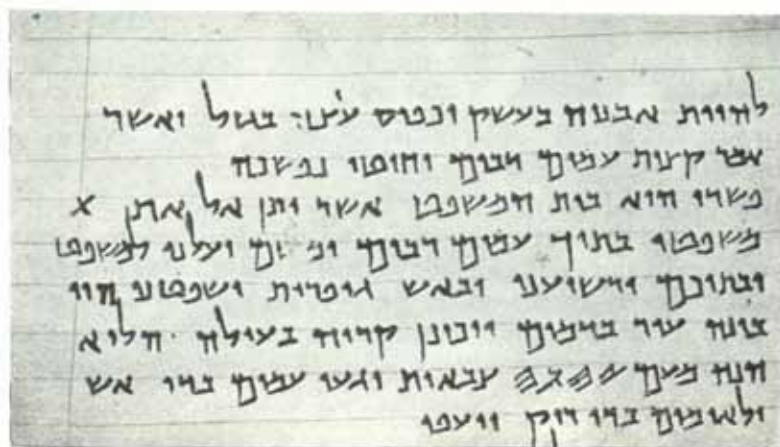 להיות אבניה בעשק וכפיס בגזל ואשר
אמר קצות עמים רבים וחוטי נפשכה
פשרו הוא בית המשפט אשר יתן אל את X
משפטו בתוך עמים רבים יעלנו למשפט
ובתוכם ירשיענו ובאש גופרית ישפטנו הוי
בונה עיר בדמים ויכונן קריה בעולה הלוא
הנה מעם 𐤉𐤄𐤅𐤄 צבאות יגעו עמים בדי אש
ולאומים בדי ריק ייעפו